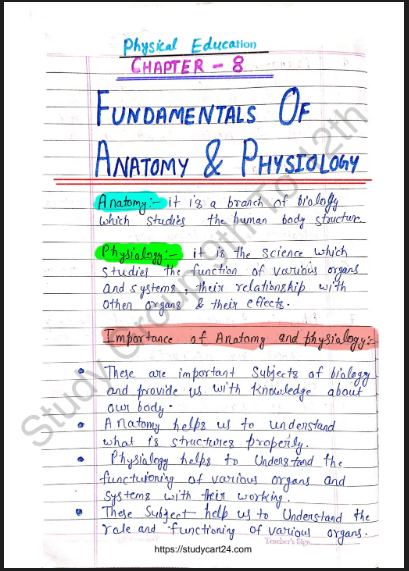 Physical Education
CHAPTER - 8
FUNDAMENTALS OF
ANATOMY & PHYSIOLOGY
Anatomy:- it is a branch of biology
which studies the human body structure.
Physiology:- it is the science which
studies the function of various organs
and systems, their relationship with
other organs & their effects.
Importance of Anatomy and physiology:-
• These are important Subjects of biology
and provide us with knowledge about
our body.
• Anatomy helps us to understand
what is structures properly.
• Physiology helps to Understand the
functioning of various organs and
systems with their working.
• These Subject help us to Understand the
role and functioning of various organs.
Teacher's Sign
https://studycart24.com
Study Group 9th To 12th